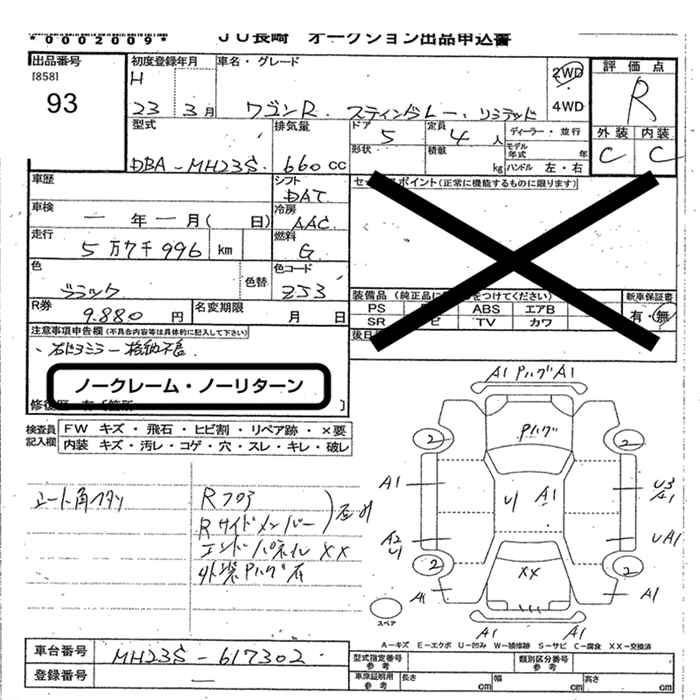 *0002009* JU長崎 オークション出品申込書
出品番号
[858]
93
初度登録年月
H
23 3 月
車名・グレード
ワゴンR スティングレー リミテッド
2WD
4WD
評価点
R
外装 内装
C C
型式
DBA-MH23S
排気量
660 cc
ドア
5
定員
4 人
形状
積載
kg
ディーラー・並行
モデル年式 年
ハンドル 左・右
車歴
シフト
DAT
車検
一 年 一 月( 日)
冷房
AAC
走行
5万7千996 km
燃料
G
色
ブラック
色替
色コード
ZJ3
R券
9.880 円
名変期限
月 日
ポイント(正常に機能するものに限ります)
装備品(純正品に をつけてください)
PS ABS エアB
SR TV カワ
新車保証書
有・無
後日
注意事項申告欄(不具合内容等は具体的に記入して下さい)
・右ドアミラー格納不良
ノークレーム・ノーリターン
検査員記入欄
FW キズ・飛石・ヒビ割・リペア跡・×要
内装 キズ・汚レ・コゲ・穴・スレ・キレ・破レ
Rフロア
Rサイドメンバー
エンドパネルXX
A1 Pハゲ A1
2 2
Pハゲ
A1 U1 A1 U3
A1
A2
U1
UA1
2 2
XX
A1 A1
A1 A1
スペア
A-キズ E-エクボ U-凹み W-補修跡 S-サビ C-腐食 XX-交換済
車台番号
MH23S-617302
登録番号
—
型式指定番号
参考
類別区分番号
参考
車庫証明用
参考
長さ cm
幅 cm
高さ cm